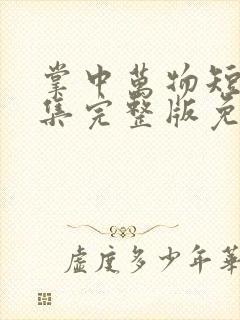 掌中萬物短
集完整版免
虛度多少年華